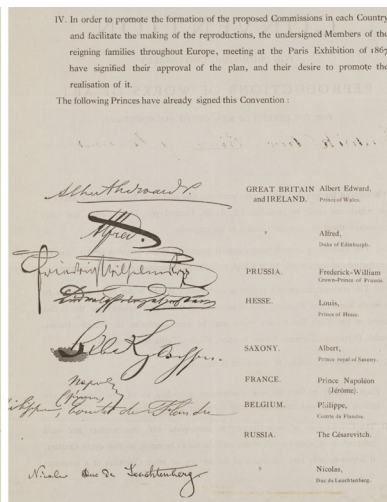 IV. In order to promote the formation of the proposed Commissions in each Country
and facilitate the making of the reproductions, the undersigned Members of the
reigning families throughout Europe, meeting at the Paris Exhibition of 1867
have signified their approval of the plan, and their desire to promote the
realisation of it.
The following Princes have already signed this Convention :
Albert Edward P.
GREAT BRITAIN Albert Edward,
and IRELAND. Prince of Wales.
Alfred.
" Alfred,
Duke of Edinburgh.
Friedrich Wilhelm
PRUSSIA. Frederick-William
Crown-Prince of Prussia.
HESSE. Louis,
Prince of Hesse.
SAXONY. Albert,
Prince royal of Saxony.
Napoléon
(Jérôme)
FRANCE. Prince Napoléon
(Jérôme).
Philippe, Comte de Flandre
BELGIUM. Philippe,
Comte de Flandre.
RUSSIA. The Césarevitch.
Nicolas Duc de Leuchtenberg
" Nicolas,
Duc de Leuchtenberg.